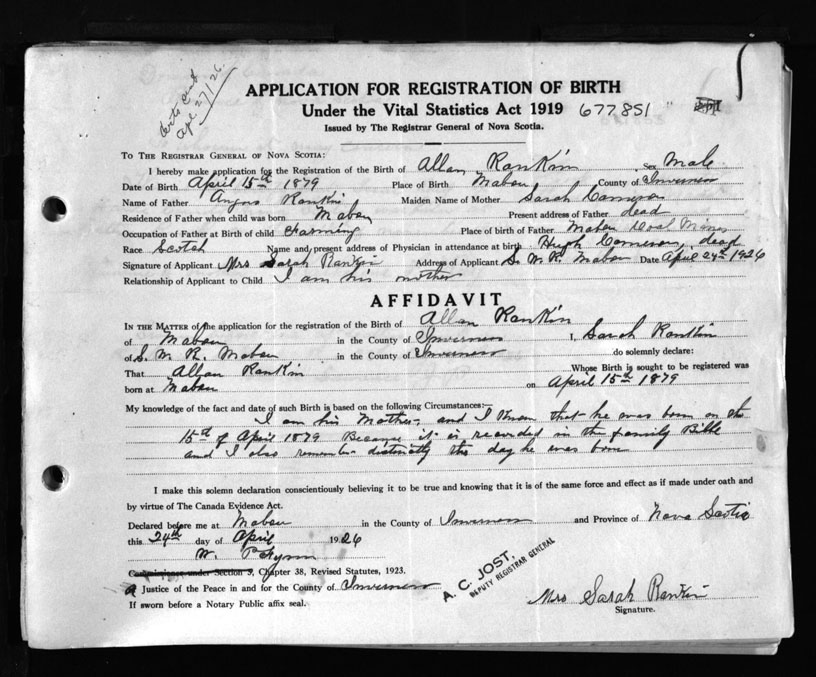 Apl 27/26.
APPLICATION FOR REGISTRATION OF BIRTH
Under the Vital Statistics Act 1919 677851
Issued by The Registrar General of Nova Scotia.
TO THE REGISTRAR GENERAL OF NOVA SCOTIA:
I hereby make application for the Registration of the Birth of Allan Rankin Sex Male
Date of Birth April 15th 1879 Place of Birth Mabou County of Inverness
Name of Father Angus Rankin Maiden Name of Mother Sarah Cameron
Residence of Father when child was born Mabou Present address of Father dead
Occupation of Father at Birth of child Farming Place of birth of Father Mabou Coal Mines
Race Scotch Name and present address of Physician in attendance at birth Hugh Cameron, dead
Signature of Applicant Mrs Sarah Rankin Address of Applicant S. M. R. Mabou Date April 24th 1926
Relationship of Applicant to Child I am his mother
AFFIDAVIT
IN THE MATTER of the application for the registration of the Birth of Allan Rankin
of Mabou in the County of Inverness I, Sarah Rankin
of S. M. R. Mabou in the County of Inverness do solemnly declare:
That Allan Rankin Whose Birth is sought to be registered was
born at Mabou on April 15th 1879
My knowledge of the fact and date of such Birth is based on the following Circumstances:—
I am his Mother, and I know that he was born on the
15th of April 1879 Because it is recorded in the family Bible
and I also remember distinctly the day he was born
I make this solemn declaration conscientiously believing it to be true and knowing that it is of the same force and effect as if made under oath and
by virtue of The Canada Evidence Act.
Declared before me at Mabou in the County of Inverness and Province of Nova Scotia
this 24th day of April 1926
W.
under Section 3, Chapter 38, Revised Statutes, 1923.
A Justice of the Peace in and for the County of Inverness
If sworn before a Notary Public affix seal.
A. C. JOST,
DEPUTY REGISTRAR GENERAL
Mrs Sarah Rankin
Signature.